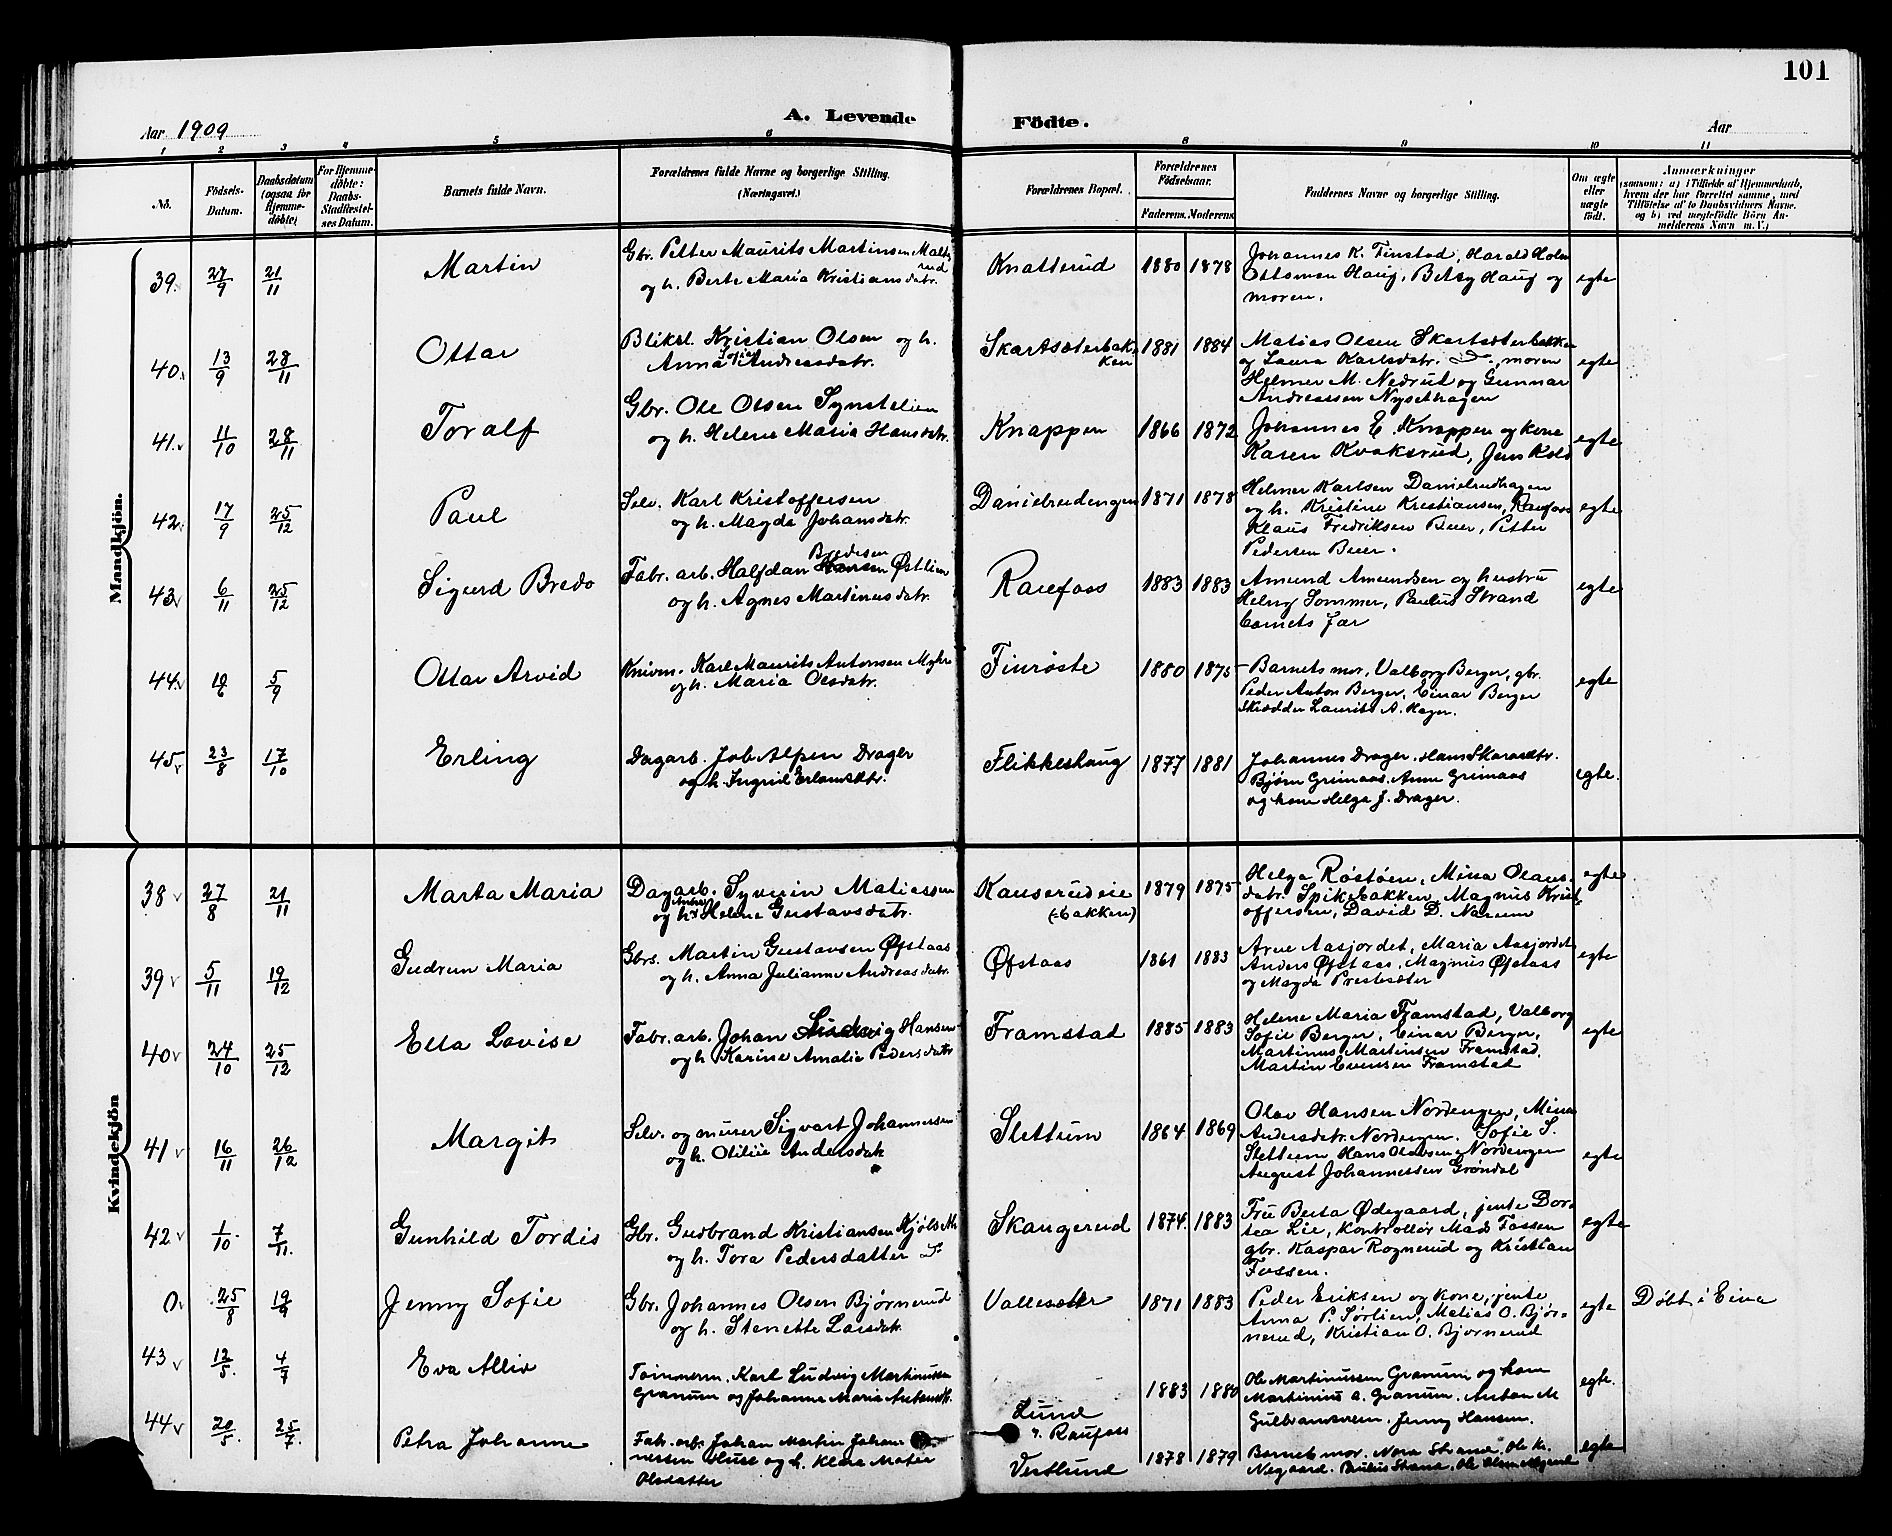 101
Aar 1909
A. Levende Födte.
Aar
1 2 3 4 5 6 8 9 10 11
No.
Födsels-Datum.
Daabsdatum (ogsaa for Hjemmedöbte)
For Hjemmedöbte: Daabs-Stadfæstelses Datum.
Barnets fulde Navn.
Forældrenes fulde Navne og borgerlige Stilling. (Næringsvei.)
Forældrenes Bopæl.
Forældrenes Födselsaar.
Faderens. Moderens.
Faddernes Navne og borgerlige Stilling.
Om ægte eller uægte födt.
Anmærkninger
(saasom: a) i Tilfælde af Hjemmedaab, hvem der har forrettet samme, med Tilföielse af to Daabsvidners Navne. og b) ved uægtefödte Börn Anmelderens Navn m. V.)
Mandkjön.
39. 27/9 21/11 Martin
Gbr. Petter Maurits Martinsen Malterud
og h. Berte Maria Kristiansdatr.
Knatterud 1880 1878
Johannes K. Finstad, Harald Holm
Ottsmen Haug, Betsy Haug og
moren.
egte
40. 13/9 28/11 Ottar
Bliksl. Kristian Olsen og h.
Anna Sofie Andreasdatr.
Skartsæterbakken 1881 1884
Matias Olsen Skartsæterbakken
og Laura Karlsdatr. moren
Helmer M. Nedrud og Gunnar
Andreassen Nysethagen
egte
41. 11/10 28/11 Toralf
Gbr. Ole Olsen Synstelien
og h. Helene Maria Hansdatr.
Knappen 1866 1872
Johannes E. Knappen og kone
Karen Kvaksrud, Jens Kolb
egte
42. 17/9 25/12 Paul
Selv. Karl Kristoffersen
og h. Magda Johansdatr.
Danielrudengen 1871 1878
Helmer Karlsen Danielrudhagen
og h. Kristine Kristiansen, Raufoss
Klaus Fredriksen Buer, Petter
Pedersen Buer.
egte
43. 6/11 25/12 Sigurd Bredo
Fabr. arb. Halfdan Bredesen Østlien
og h. Agnes Martinusdatr.
Raufoss 1883 1883
Amund Amundsen og hustru
Helny Sommer, Paulus Strand
barnets far
egte
44. 19/6 5/9 Ottar Arvid
Knivm. Karl Maurits Antonsen Myhre
og h. Maria Olsdatr.
Finröste 1880 1875
Barnets mor, Valborg Berger, gbr.
Peder Anton Berger, Einar Berger
Skrædder Laurits A. Hagen.
egte
45. 23/8 17/10 Erling
Dagarb. Job Alpen Drager
og h. Ingrid Erlandsdtr.
Flikkeshaug 1877 1881
Johannes Drager. Hans Skarasætr.
Bjørn Grimaas. Anne Grimaas
og kone Helga J. Drager.
egte.
Kvindekjön
38 27/8 21/11 Marta Maria
Dagarb. Syverin Matiassen
og hs Helene Gustavsdatr.
Kauserudeie
(=bakken) 1879 1875
Helga Røstøen, Mina Olausdatr.
Spikebakken, Magnus Kristoffersen,
David D. Narum
egte
39 5/11 19/12 Gudrun Maria
Gbrs. Martin Gustavsen Øfstaas
og h. Anna Julianne Andreasdatr.
Øfstaas 1861 1883
Arne Aasjordet, Maria Aasjordet
Anders Øfstaas, Magnus Øfstaas
og Magda Prestesæter
egte
40 24/10 25/12 Ella Lovise
Fabr. arb. Johan Ludvig Hansen
og h Karine Amalie Pedersdatr
Framstad 1885 1883
Helene Maria Framstad, Valborg
Sofie Berger, Einar Berger,
Martinus Martinsen Framstad.
Martin Evensen Framstad
egte
41 16/11 26/12 Margit
Selv. og murer Sigvart Johannessen
og h. Otilie Andersdatr
Slettum 1864 1869
Olav Hansen Nordengen, Mina
Andersdatr. Nordengen. Sofie S.
Slettum Hans Olavsen Nordengen
August Johannessen Grøndal
egte
42 1/10 7/11. Gunhild Tordis
Gbr. Gudbrand Kristiansen Kjølset
og h. Tora Pedersdatter
Skangerud 1874. 1883
Fru Berta Ødegaard, jente Dortea
Lie, Kontrollør Mads Fossen
gbr. Kaspar Rognerud og Kristian
Fossen.
egte
0 25/8 19/9 Jenny Sofie
Gbr. Johannes Olsen Bjørnerud
og h. Stenette Larsdatr.
Vallesætr 1871 1883
Peder Eriksen og kone, jente
Anna P. Sørlien, Matias O. Bjørnerud,
Kristian O. Bjørnerud
egte
Døbt i Eina
43 12/5. 4/7 Eva Alliv
Tømmerm. Karl Ludvig Martinussen
Granum og Johanne Marie Antonsdtr.
Lund
v. Raufoss 1883 1880
Ole Martinussen Granum og kone
Martinius A. Granum. Anton M
Gulbrandsen. Jenny Hansen.
egte.
44 20/5. 25/7. Petra Johanne
Fab. arb. Johan Martin Johannessen
Huse og h. Klara Matea
Olsdatter
Vestlund 1878 1879
Barnets mor. Nora Strand. Ole K.
Nøgaard. Paulus Strand. Ole Olsen
egte